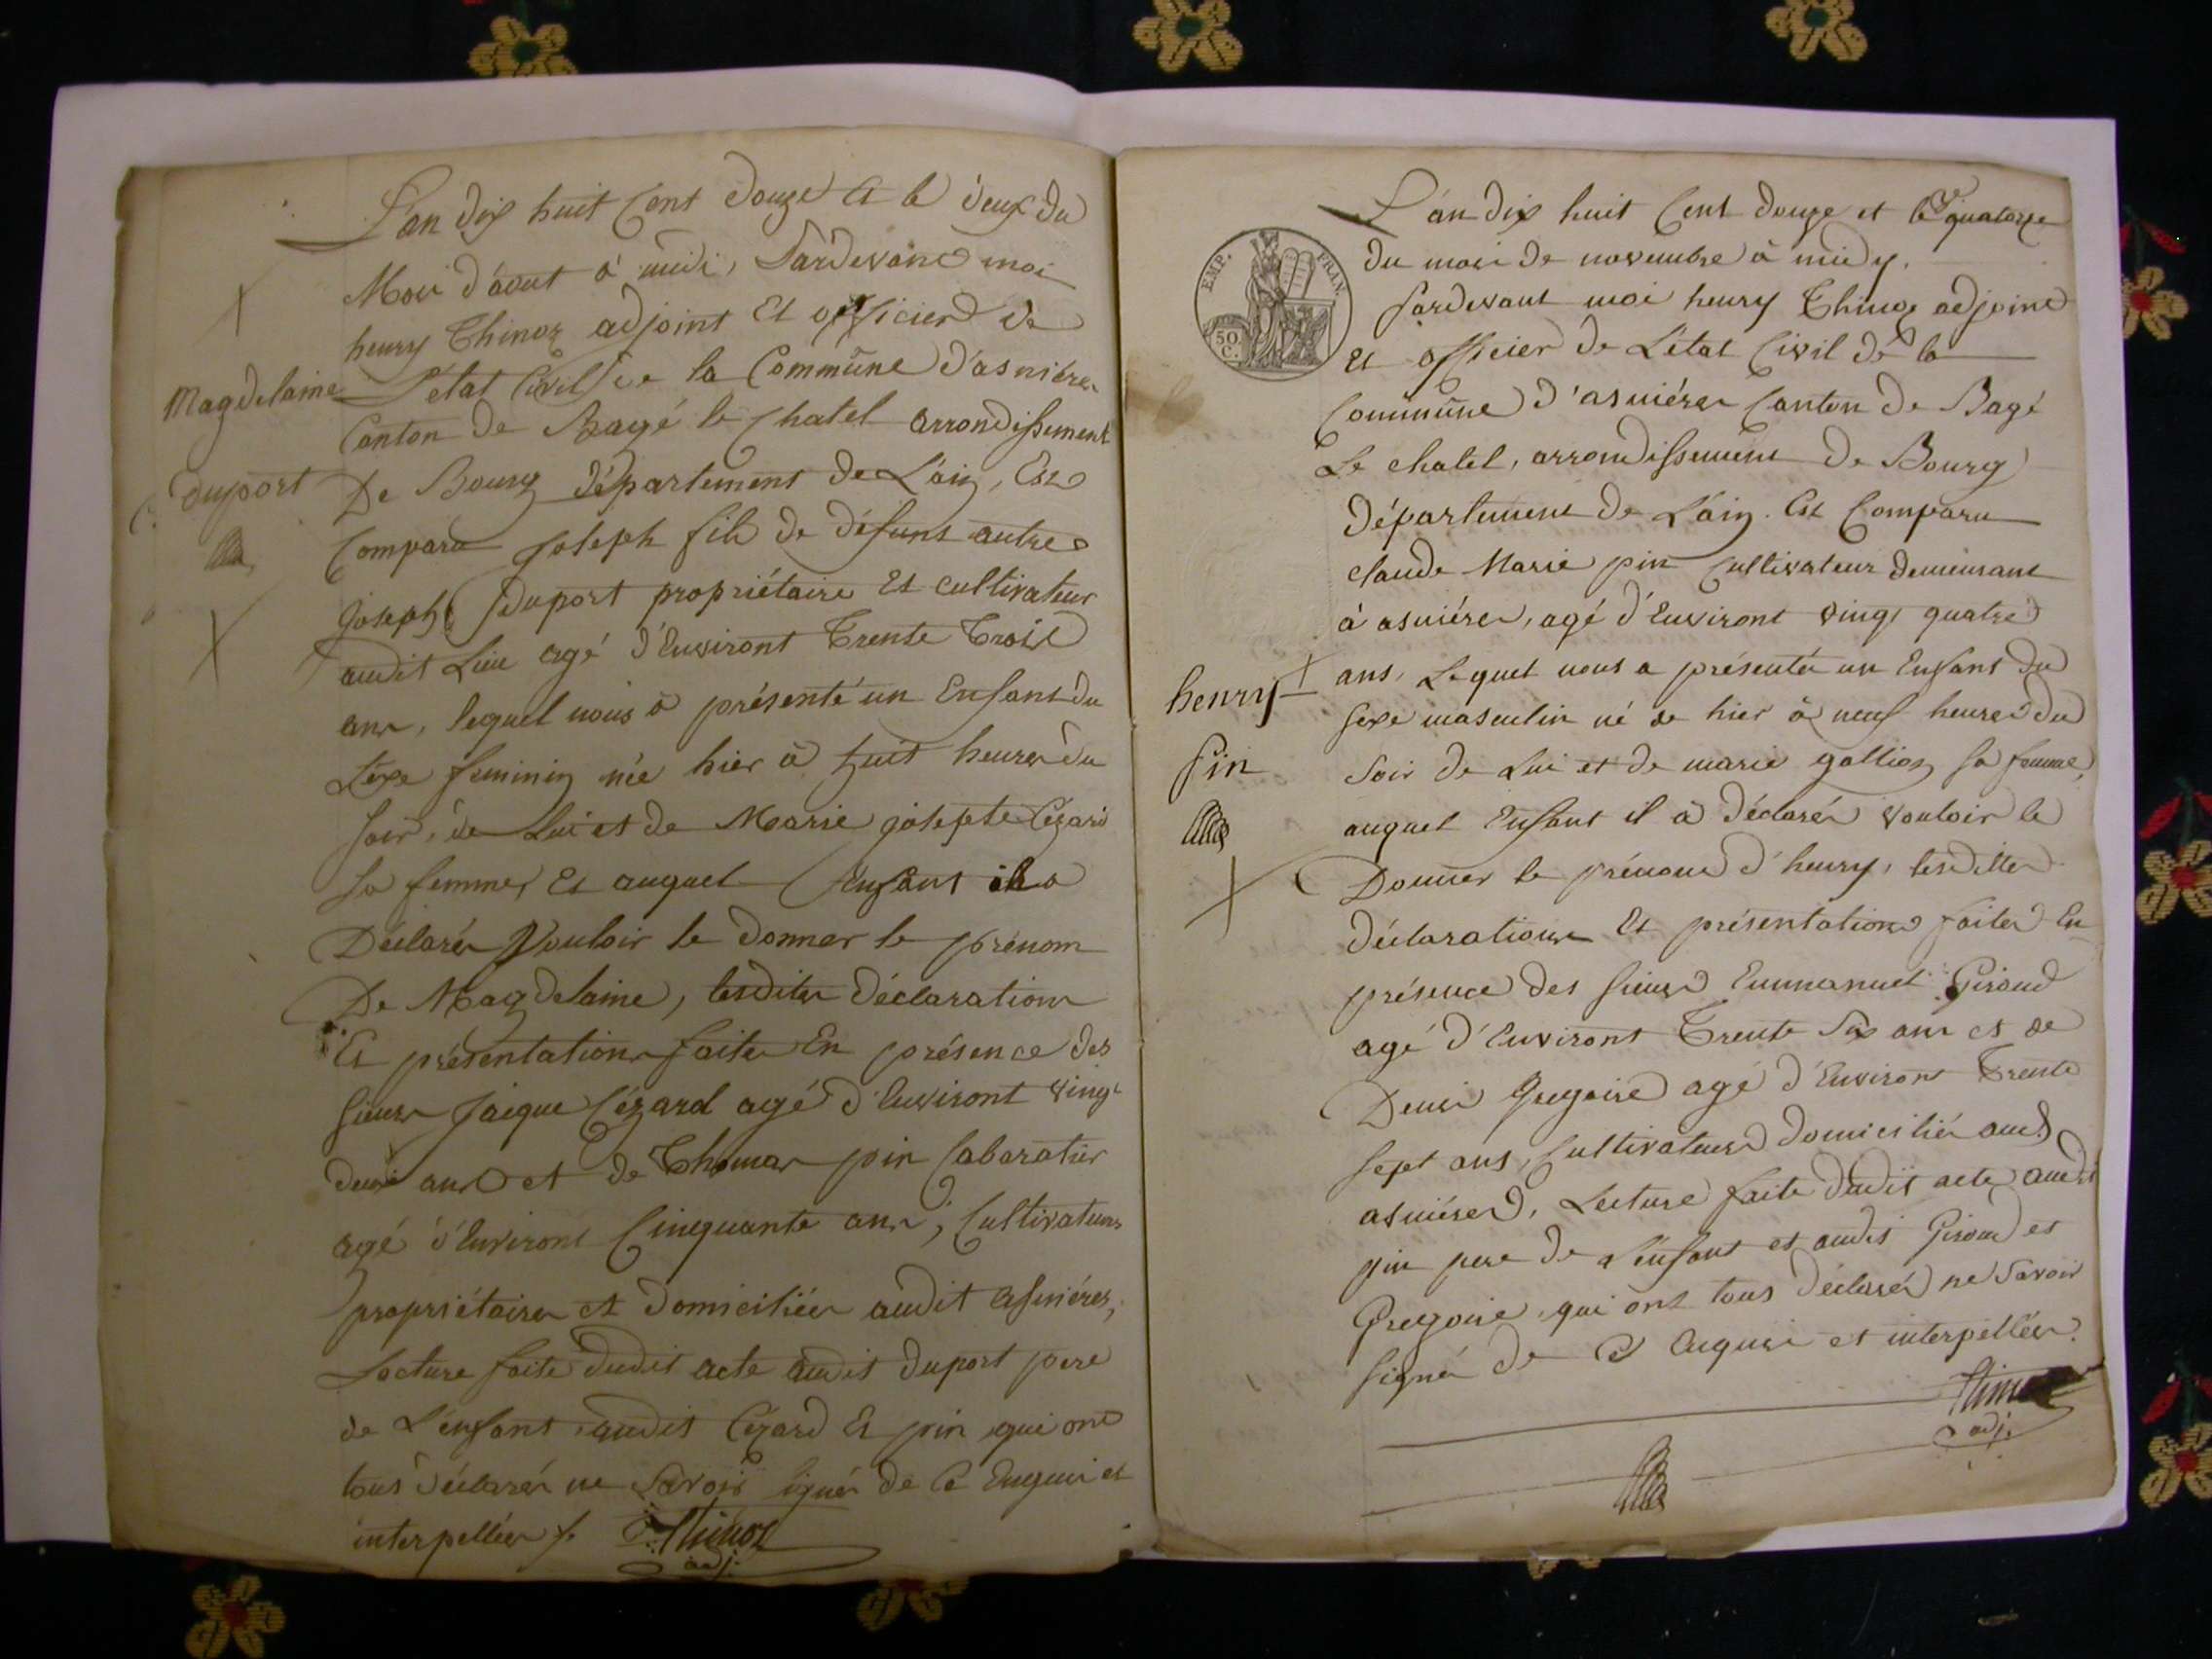 L'an dix huit Cent douze et le deux du
Mois d'aout à midi, Pardevant moi
henry Thinoz adjoint Et officier de
L'etat Civil de la Commune d'asnières
Canton de Bagé le Chatel arrondissement
De Bourg département de L'ain, Est
Comparu Joseph fils de défunt autre
Joseph duport propriétaire Et cultivateur
audit Lieu agé d'Environt Trente Trois
ans, lequel nous à présenté un Enfant du
séxe feminin née hier à huit heures du
soir, de Lui et de Marie josepte Cézard
sa femme, Et auquel Enfant il a
Déclarés Vouloir le donner le prénom
De Magdelaine, lesdites déclarations
Et présentations faites En présence des
sieurs Jaique Cézard agé d'Environt ving
deux ans et de Thomas pin Cabaratier
agé d'Environt Cinquante ans, Cultivateurs
propriétaires et domiciliées audit asnières,
Lecture faite dudit acte audit duport pere
de L'enfant, audit Cézard Et pin qui ont
tous déclarés ne Savoir signés de Ce Enquis et
interpellées ./. Thinoz
adj.
Magdelaine
duport
L'an dix huit Cent douze et le quatorze
du mois de novembre à midy.
Pardevant moi henry Thinoz adjoint
Et officier de L'état Civil de la
Commune d'asnières Canton de Bagé
Le chatel, arrondissement de Bourg
Département de L'ain. Est Comparu
claude Marie pin Cultivateur demeurant
à asnières, agé d'Environt vingt quatre
ans, Lequel nous a présentés un Enfant du
sexe masculin né de hier à neuf heures du
soir de Lui et de marie gallion sa femme,
auquel Enfant il à déclarés Vouloir le
Donner le prénom d'henry, lesdittes
déclarations Et présentations faites En
présence des sieurs Emmanuel Giroud
agé d'Environt Trente Six ans et de
Denis Gregoire agé d'Environt Trente
sept ans, Cultivateurs domiciliés aud.
asnières, Lecture faite dudit acte audit
pin pere de L'enfant et audit Giroud et
Gregoire, qui ont tous déclarés ne Savoir
signés de Ce Enquis et interpellées.
Thinoz
adj.
henry
pin
EMP. FRAN.
50
C.